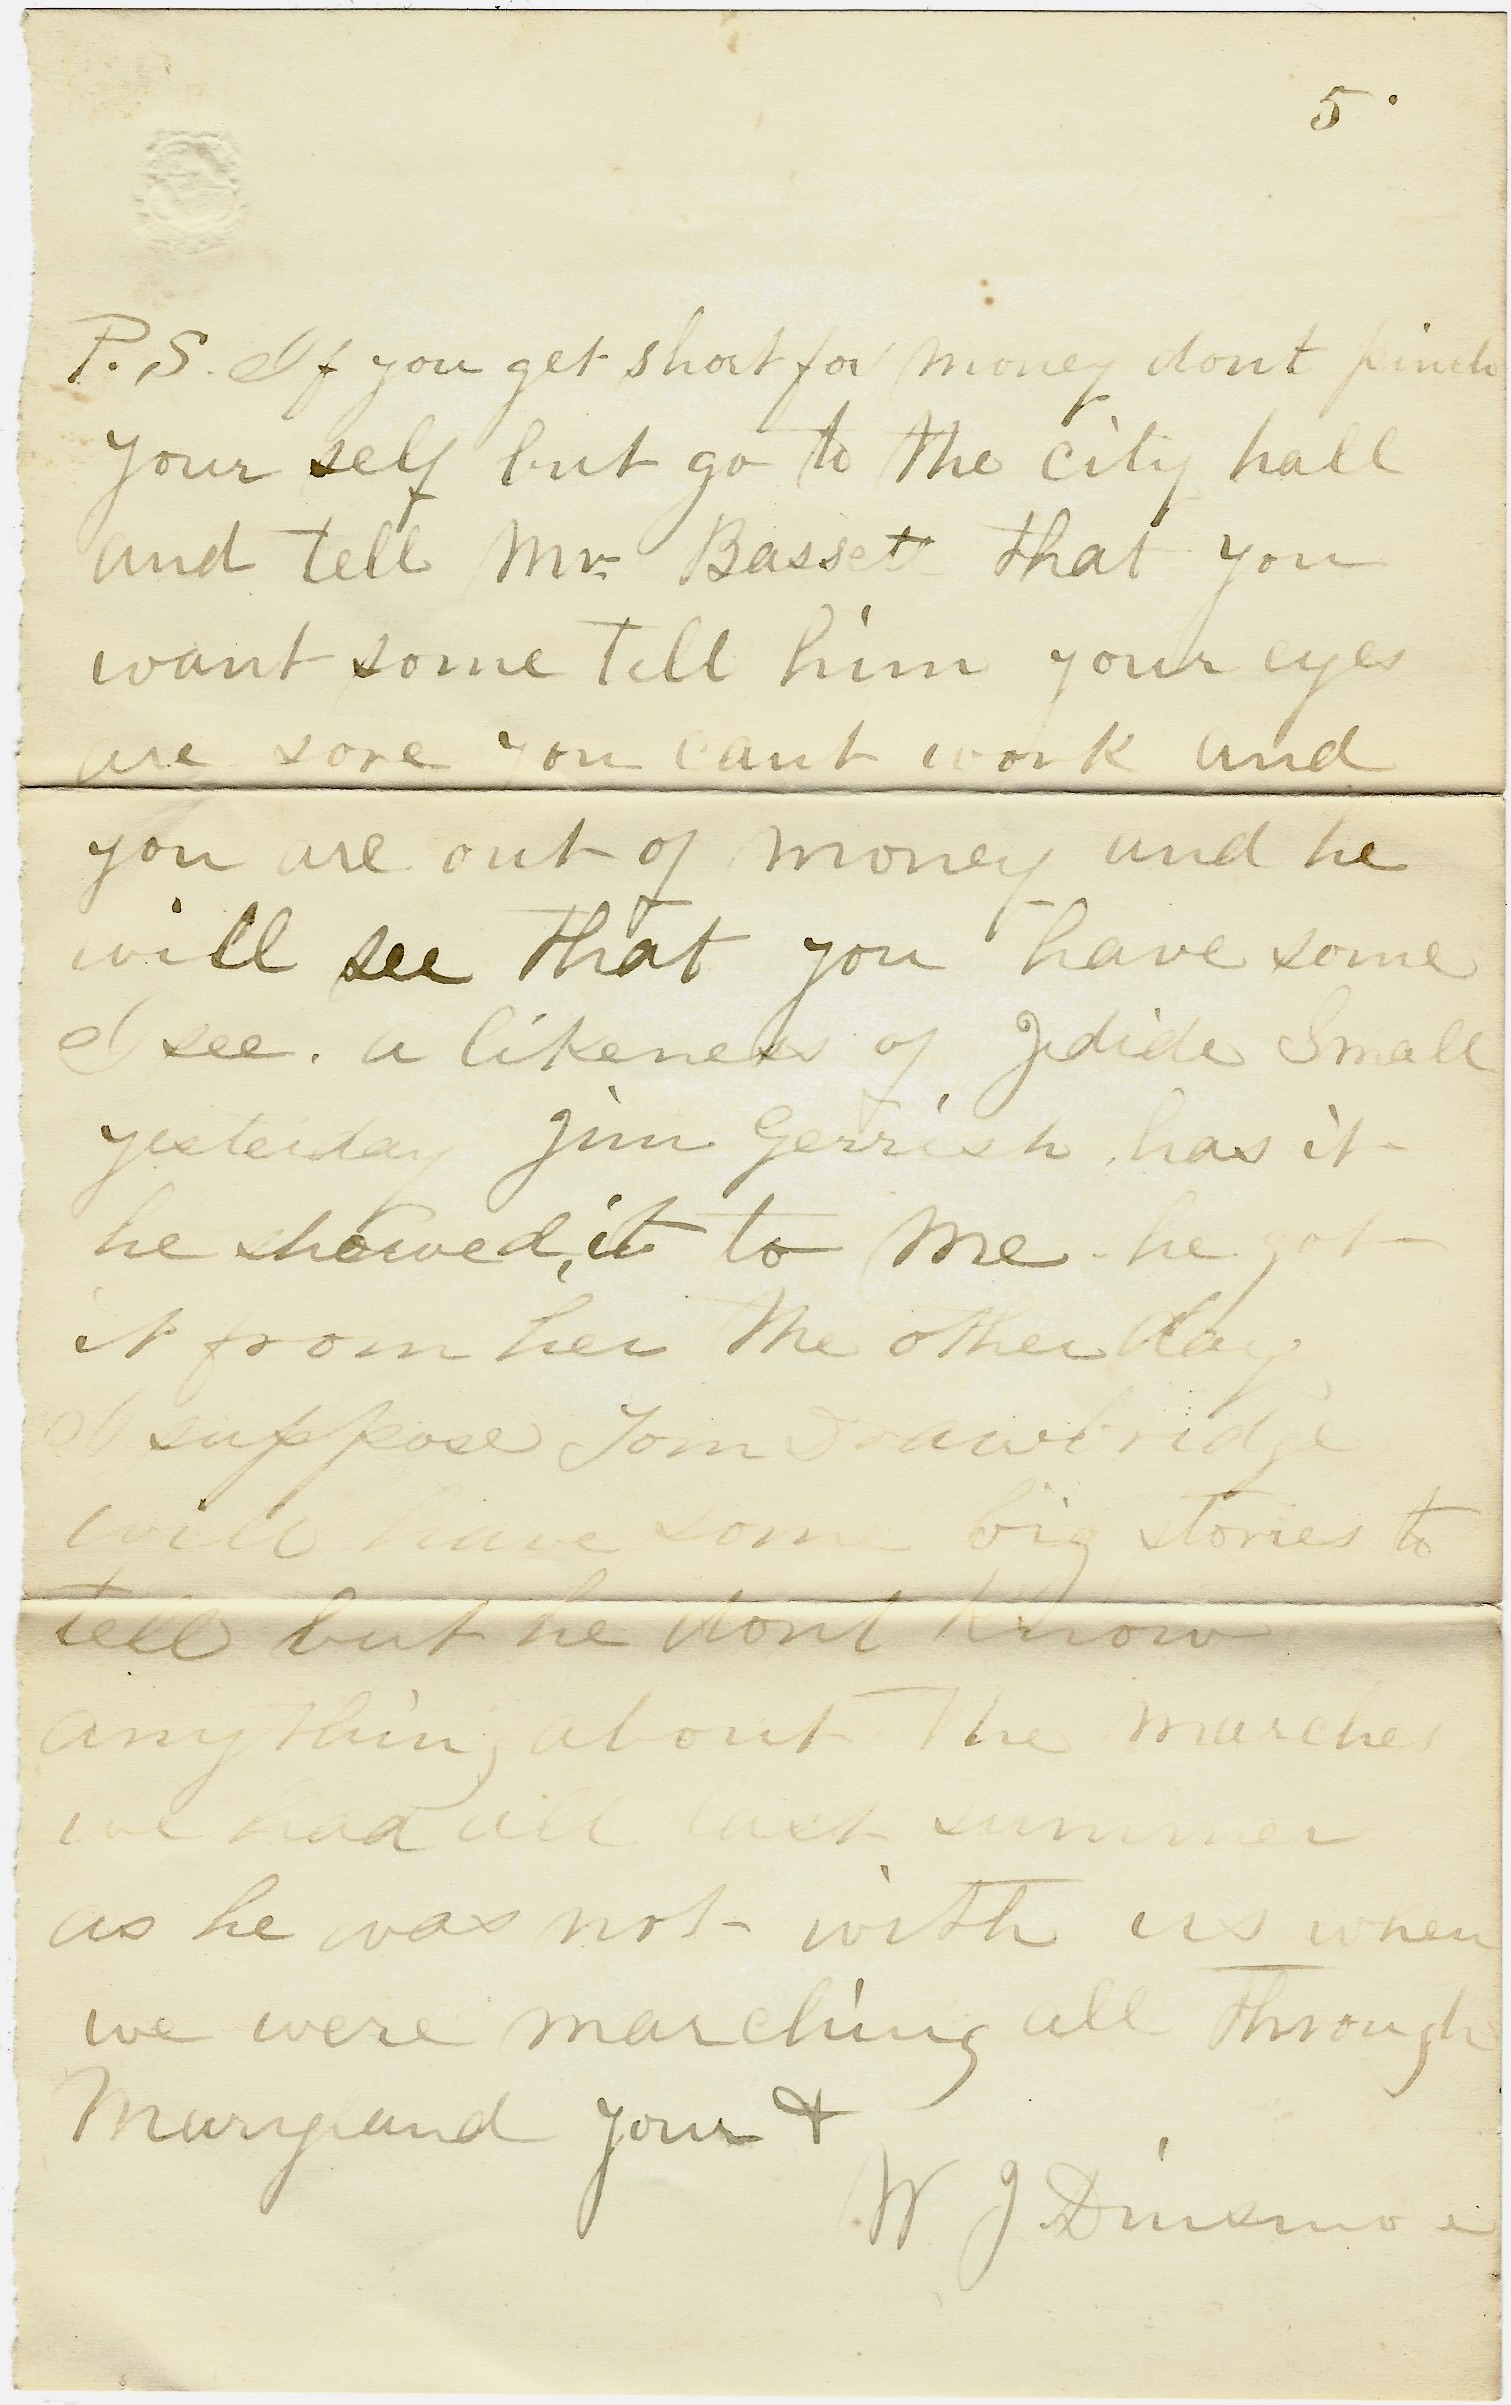 5.
P.S. If you get short for money dont pinch
your self but go to the city hall
and tell Mr. Bassett that you
want some tell him your eyes
are sore you cant work and
you are out of money and he
will see that you have some
I see. a likeness of Jdide Small
yesterday Jim Gerrish has it
he showed, it to me. he got
it from her the other day
I suppose Tom Drawbridge
will have some big stories to
tell but he dont know
anything about the marches
we had all last summer
as he was not with us when
we were marching all through
Maryland your &
W J Dinsmore